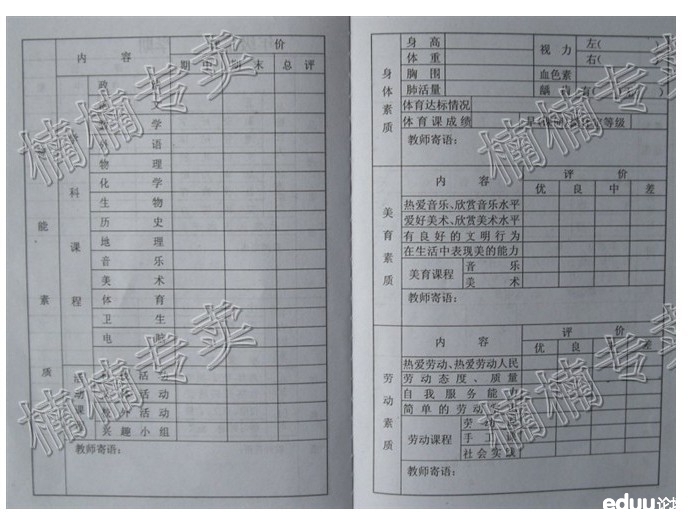 内容 评价
期中 期末 总评
能素质
学科课程
政治
语文
数学
外语
物理
化学
生物
历史
地理
音乐
美术
体育
卫生
电脑
活动课
活动
活动
活动
兴趣小组
教师寄语：
身体素质
身高 视力 左(
体重 右(
胸围 血色素
肺活量
体育达标情况
体育课成绩 等级
教师寄语：
美育素质
内容 评价
优 良 中 差
热爱音乐、欣赏音乐水平
爱好美术、欣赏美术水平
有良好的文明行为
在生活中表现美的能力
美育课程 音乐
美术
教师寄语：
劳动素质
内容 评价
优 良 中 差
热爱劳动、热爱劳动人民
劳动态度、质量
自我服务能力
简单的劳动
劳动课程 劳动
手工
社会实践
教师寄语：
楠楠专卖
楠楠专卖
楠楠专卖
楠楠专卖
eduu论坛